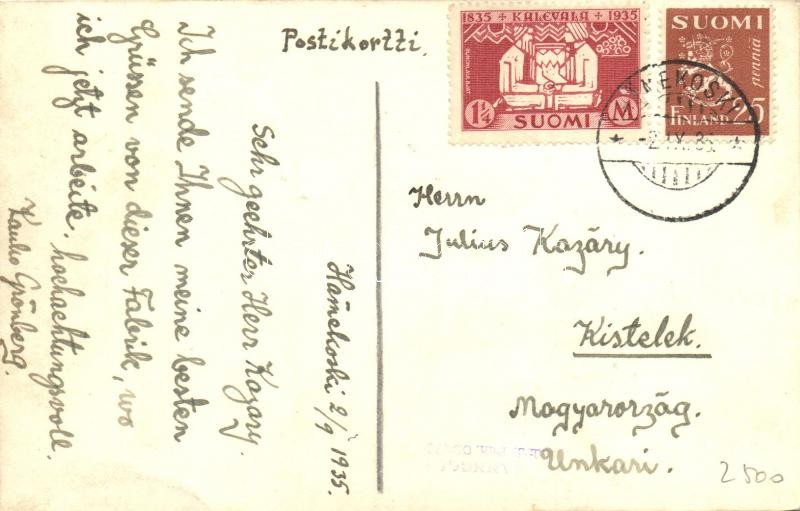 Postikortti.
1835 * KALEVALA * 1935
1¼ SUOMI M
SUOMI
pennia
FINLAND 25
NEKOSKI
-2.IX.3
Herrn
Julius Kazáry.
Kistelek.
Magyarország.
Unkari.
2500
Hämekoski 2/9 1935.
Sehr geehrter Herr Kazary.
Ich sende Ihnen meine besten
Grüssen von dieser Fabrik, wo
ich jetzt arbeite. hochachtungsvoll.
Grönberg.